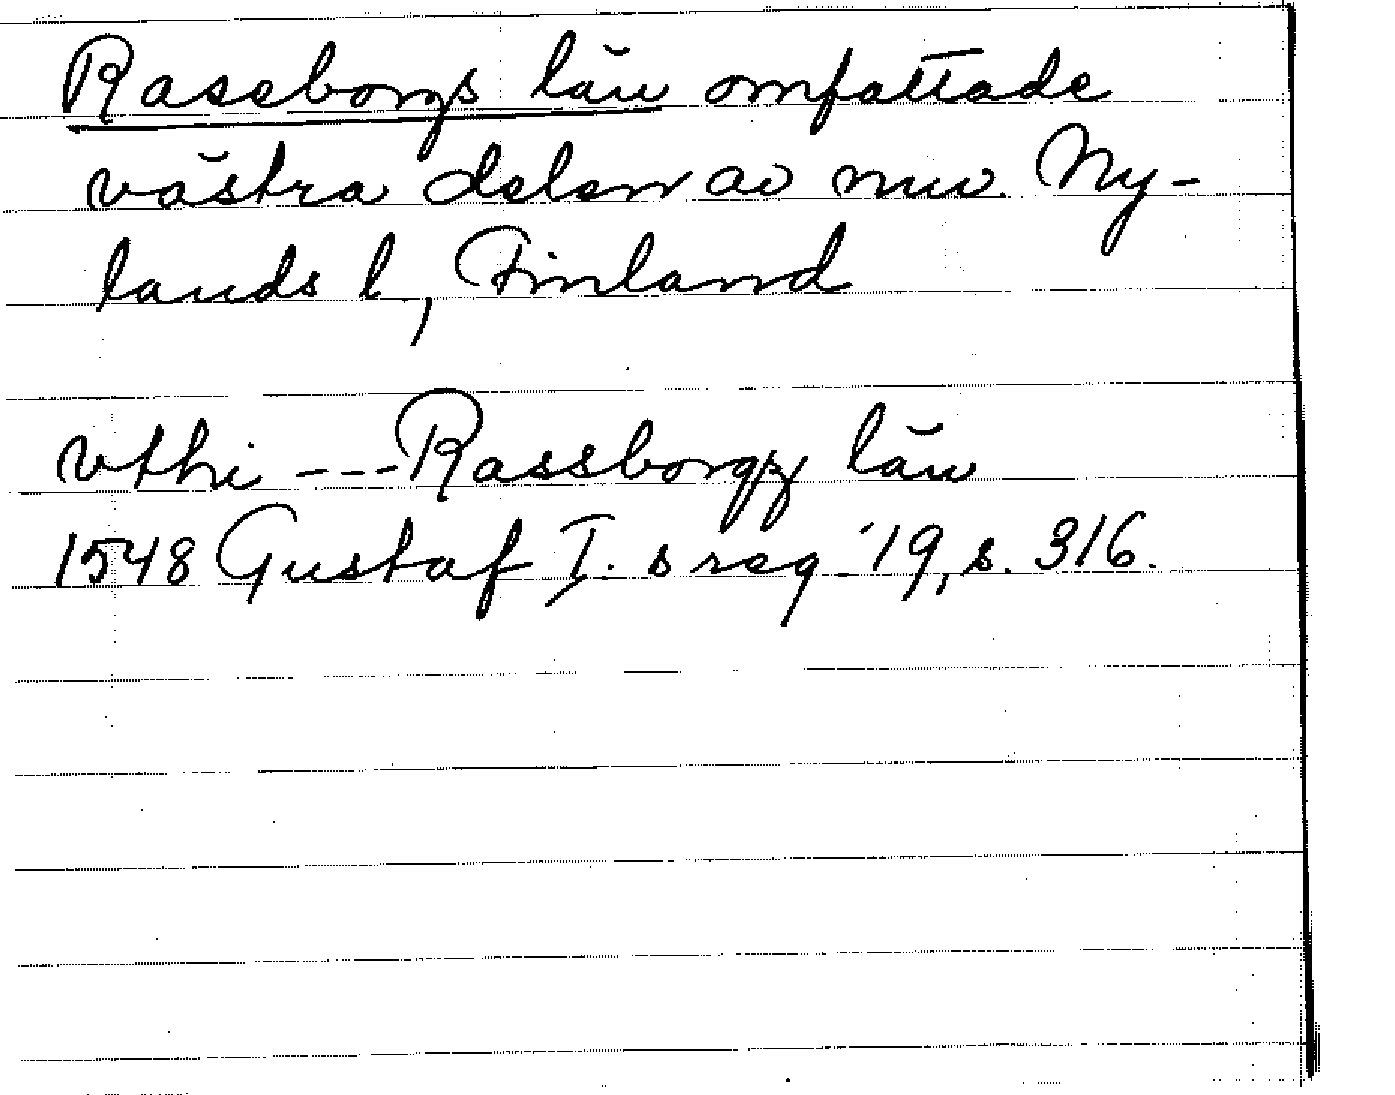 Raseborgs län omfattade
västra delen av nuv. Ny-
lands l, Finland
vthi --- Rassborgz län
1548 Gustaf I. s reg 19, s. 316.